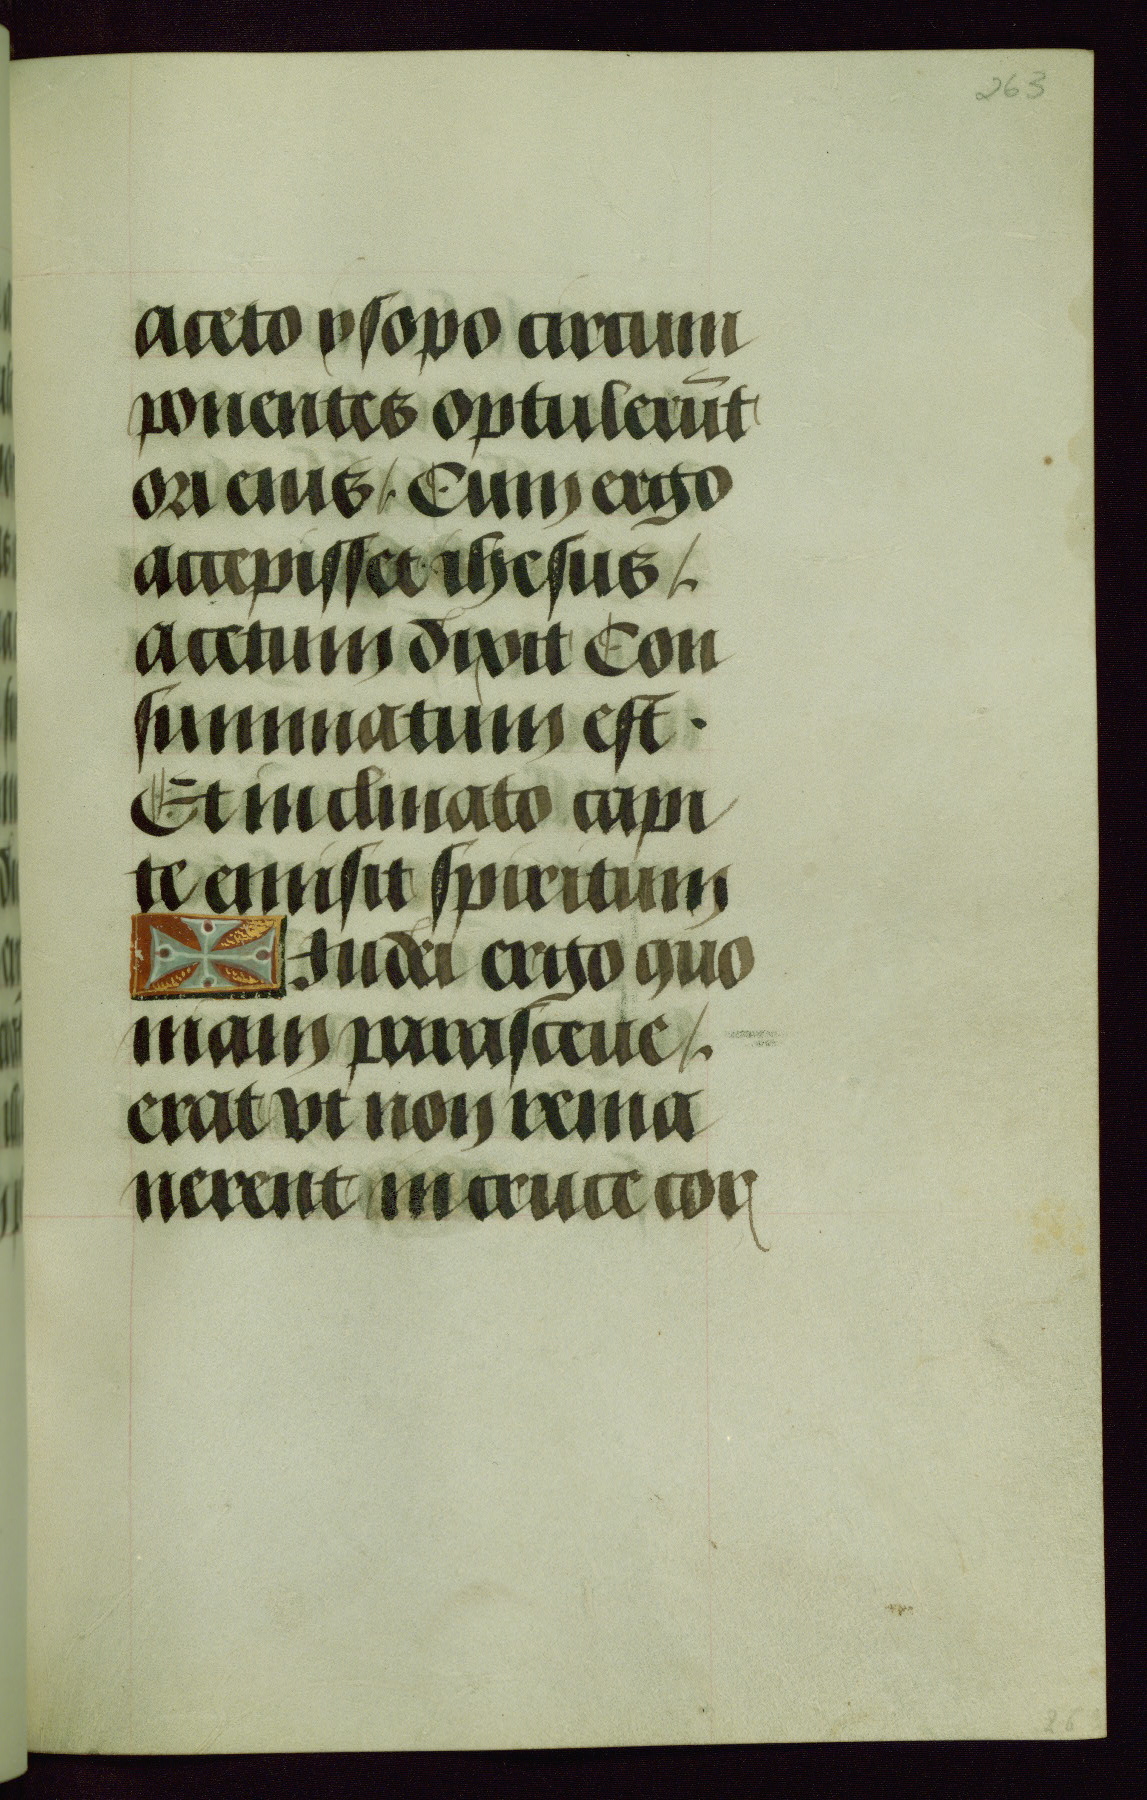 263
aceto ysopo circum
ponentes optulerūt
ori eius /. Cum ergo
accepisset ihesus /.
acetum dixit Con
summatum est .
Et inclinato capi
te emisit spiritum
Iudei ergo quo
niam parasceue /.
erat vt non rema
nerent in cruce cor